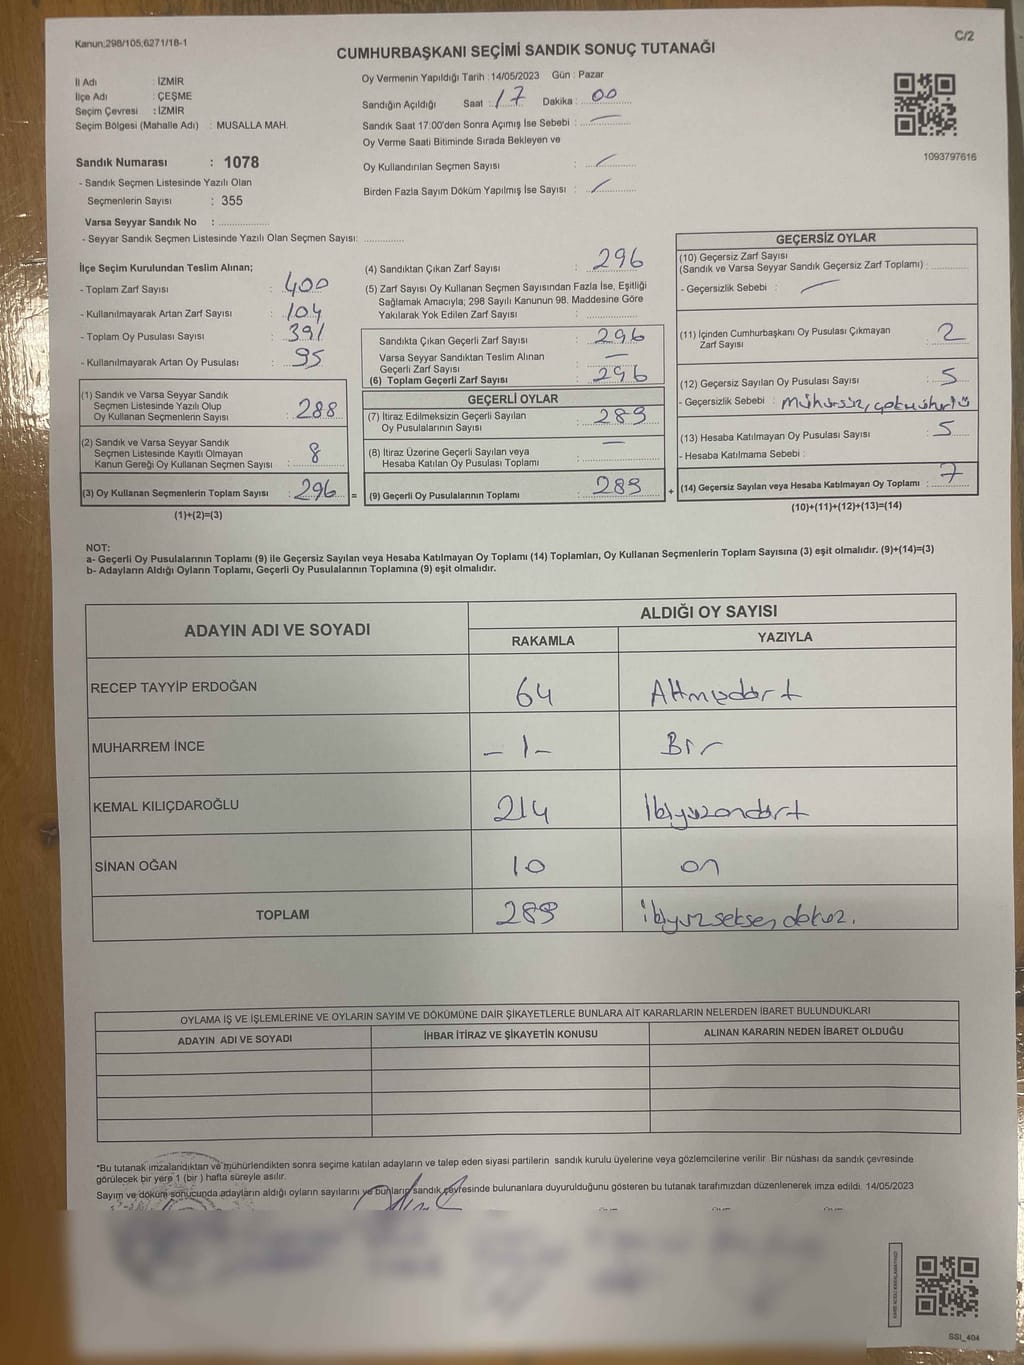 Kanun;298/105;6271/18-1
C/2
CUMHURBAŞKANI SEÇİMİ SANDIK SONUÇ TUTANAĞI
İl Adı : İZMİR
İlçe Adı : ÇEŞME
Seçim Çevresi : İZMİR
Seçim Bölgesi (Mahalle Adı) : MUSALLA MAH.
Sandık Numarası : 1078
- Sandık Seçmen Listesinde Yazılı Olan
Seçmenlerin Sayısı : 355
Varsa Seyyar Sandık No :
- Seyyar Sandık Seçmen Listesinde Yazılı Olan Seçmen Sayısı:
Oy Vermenin Yapıldığı Tarih : 14/05/2023 Gün : Pazar
Sandığın Açıldığı Saat : 17 Dakika : 00
Sandık Saat 17:00'den Sonra Açımış İse Sebebi : —
Oy Verme Saati Bitiminde Sırada Bekleyen ve
Oy Kullandırılan Seçmen Sayısı : —
Birden Fazla Sayım Döküm Yapılmış İse Sayısı : —
1093797616
İlçe Seçim Kurulundan Teslim Alınan;
- Toplam Zarf Sayısı : 400
- Kullanılmayarak Artan Zarf Sayısı : 104
- Toplam Oy Pusulası Sayısı : 391
- Kullanılmayarak Artan Oy Pusulası : 95
(1) Sandık ve Varsa Seyyar Sandık
Seçmen Listesinde Yazılı Olup
Oy Kullanan Seçmenlerın Sayısı : 288
(2) Sandık ve Varsa Seyyar Sandık
Seçmen Listesinde Kayıtlı Olmayan
Kanun Gereği Oy Kullanan Seçmen Sayısı : 8
(3) Oy Kullanan Seçmenlerin Toplam Sayısı : 296 =
(1)+(2)=(3)
(4) Sandıktan Çıkan Zarf Sayısı : 296
(5) Zarf Sayısı Oy Kullanan Seçmen Sayısından Fazla İse, Eşitliği
Sağlamak Amacıyla; 298 Sayılı Kanunun 98. Maddesine Göre
Yakılarak Yok Edilen Zarf Sayısı :
Sandıkta Çıkan Geçerli Zarf Sayısı : 296
Varsa Seyyar Sandıktan Teslim Alınan
Geçerli Zarf Sayısı : —
(6) Toplam Geçerli Zarf Sayısı : 296
GEÇERLİ OYLAR
(7) İtiraz Edilmeksizin Geçerli Sayılan
Oy Pusulalarının Sayısı : 289
(8) İtiraz Üzerine Geçerli Sayılan veya
Hesaba Katılan Oy Pusulası Toplamı : —
(9) Geçerli Oy Pusulalarının Toplamı : 289 +
GEÇERSİZ OYLAR
(10) Geçersiz Zarf Sayısı
(Sandık ve Varsa Seyyar Sandık Geçersiz Zarf Toplamı) :
- Geçersizlik Sebebi : —
(11) İçinden Cumhurbaşkanı Oy Pusulası Çıkmayan
Zarf Sayısı : 2
(12) Geçersiz Sayılan Oy Pusulası Sayısı : 5
- Geçersizlik Sebebi : Mühürsüz, çokmühürlü
(13) Hesaba Katılmayan Oy Pusulası Sayısı : 5
- Hesaba Katılmama Sebebi :
(14) Geçersiz Sayılan veya Hesaba Katılmayan Oy Toplamı : 7
(10)+(11)+(12)+(13)=(14)
NOT:
a- Geçerli Oy Pusulalarının Toplamı (9) ile Geçersiz Sayılan veya Hesaba Katılmayan Oy Toplamı (14) Toplamları, Oy Kullanan Seçmenlerin Toplam Sayısına (3) eşit olmalıdır. (9)+(14)=(3)
b- Adayların Aldığı Oyların Toplamı, Geçerli Oy Pusulalarının Toplamına (9) eşit olmalıdır.
ADAYIN ADI VE SOYADI ALDIĞI OY SAYISI
RAKAMLA YAZIYLA
RECEP TAYYİP ERDOĞAN 64 Altmışdört
MUHARREM İNCE - 1 - Bir
KEMAL KILIÇDAROĞLU 214 İkiyüzondört
SİNAN OĞAN 10 on
TOPLAM 289 ikiyüzseksendokuz.
OYLAMA İŞ VE İŞLEMLERİNE VE OYLARIN SAYIM VE DÖKÜMÜNE DAİR ŞİKAYETLERLE BUNLARA AİT KARARLARIN NELERDEN İBARET BULUNDUKLARI
ADAYIN ADI VE SOYADI İHBAR İTİRAZ VE ŞİKAYETİN KONUSU ALINAN KARARIN NEDEN İBARET OLDUĞU
*Bu tutanak imzalandıktan ve mühürlendikten sonra seçime katılan adayların ve talep eden siyasi partilerin sandık kurulu üyelerine veya gözlemcilerine verilir. Bir nüshası da sandık çevresinde
görülecek bir yere 1 (bir) hafta süreyle asılır.
Sayım ve döküm sonucunda adayların aldığı oyların sayılarını ve bunların sandık çevresinde bulunanlara duyurulduğunu gösteren bu tutanak tarafımızdan düzenlenerek imza edildi. 14/05/2023
SSI_404